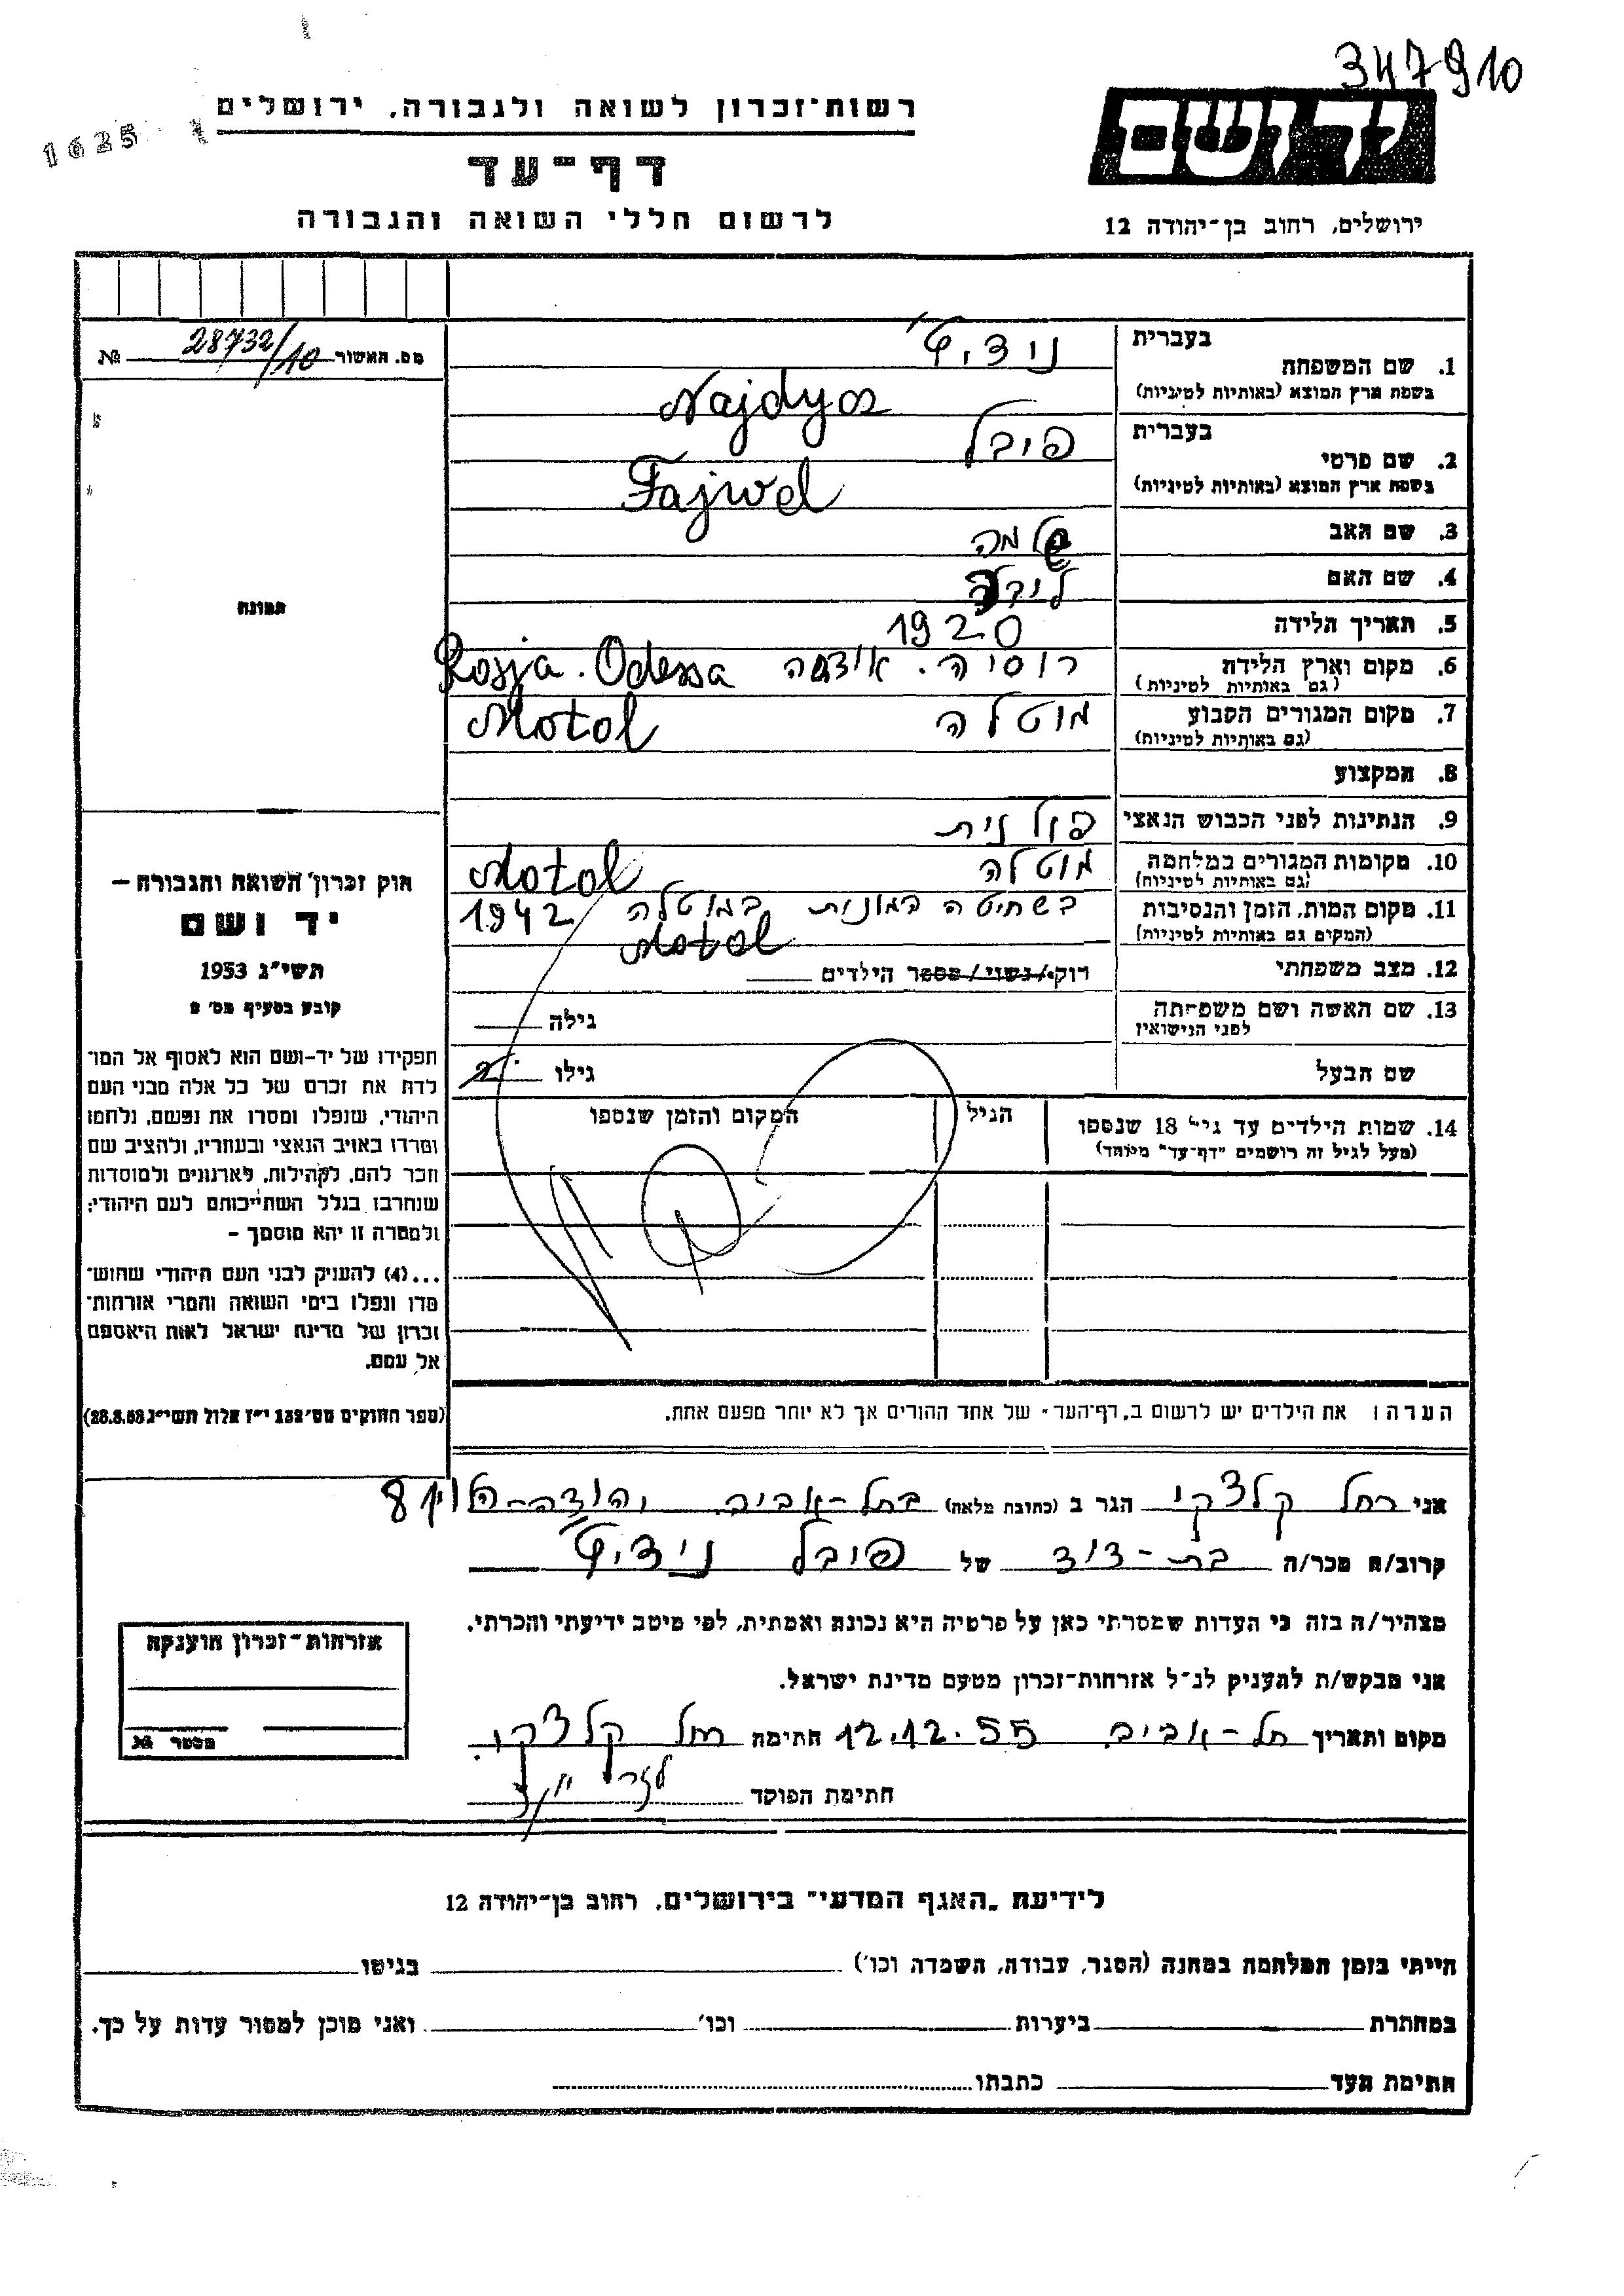 347910
1625
רשות־זכרון לשואה ולגבורה, ירושלים
יד ושם
דף־עד
לרשום חללי השואה והגבורה
ירושלים, רחוב בן־יהודה 12
מס. האשור 28732/10 №
1. שם המשפחה בעברית נידיץ'
בשפת ארץ המוצא (באותיות לטיניות) Najdycz
2. שם פרטי בעברית פיבל
בשפת ארץ המוצא (באותיות לטיניות) Fajwel
3. שם האב שלמה
4. שם האם
5. תאריך הלידה 1920
6. מקום וארץ הלידה (גם באותיות לטיניות) רוסיה. אודסה Rosja. Odessa
7. מקום המגורים הקבוע (גם באותיות לטיניות) מוטלה Motol
8. המקצוע
9. הנתינות לפני הכבוש הנאצי פולנית
10. מקומות המגורים במלחמה (גם באותיות לטיניות) מוטלה Motol
11. מקום המות, הזמן והנסיבות (המקום גם באותיות לטיניות) בשחיטה המונית במוטלה 1942 Motol
12. מצב משפחתי רווק/נשוי/מספר הילדים
13. שם האשה ושם משפחתה לפני הנישואין גילה
שם הבעל גילו
14. שמות הילדים עד גיל 18 שנספו (מעל לגיל זה רושמים "דף־עד" מיוחד) הגיל המקום והזמן שנספו
תמונה
חוק זכרון השואה והגבורה –
יד ושם
תשי"ג 1953
קובע בסעיף מס' 2
תפקידו של יד-ושם הוא לאסוף אל המו־
לדת את זכרם של כל אלה מבני העם
היהודי, שנפלו ומסרו את נפשם, נלחמו
ומרדו באויב הנאצי ובעוזריו, ולהציב שם
וזכר להם, לקהילות, לארגונים ולמוסדות
שנחרבו בגלל השתייכותם לעם היהודי;
ולמטרה זו יהא מוסמך –
...(4) להעניק לבני העם היהודי שהוש־
מדו ונפלו בימי השואה והמרי אזרחות־
זכרון של מדינת ישראל לאות היאספם
אל עמם.
(ספר החוקים מס' 132 י"ז אלול תשי"ג 28.8.53)
הערה: את הילדים יש לרשום ב"דף־העד" של אחד ההורים אך לא יותר מפעם אחת.
אני רחל קלצקי הגר ב (כתובת מלאה) בתל-אביב יהודה-הלוי 8
קרוב/ה מכר/ה בת-דוד של פיבל נידיץ'
מצהיר/ה בזה כי העדות שמסרתי כאן על פרטיה היא נכונה ואמתית, לפי מיטב ידיעתי והכרתי.
אני מבקש/ת להעניק לנ"ל אזרחות־זכרון מטעם מדינת ישראל.
מקום ותאריך תל-אביב 12.12.55 חתימה רחל קלצקי
חתימת הפוקד
אזרחות־זכרון הוענקה
מספר №
לידיעת "האגף המדעי" בירושלים, רחוב בן־יהודה 12
הייתי בזמן המלחמה במחנה (הסגר, עבודה, השמדה וכו') בגיטו
במחתרת ביערות וכו' ואני מוכן למסור עדות על כך.
חתימת העד כתבתו